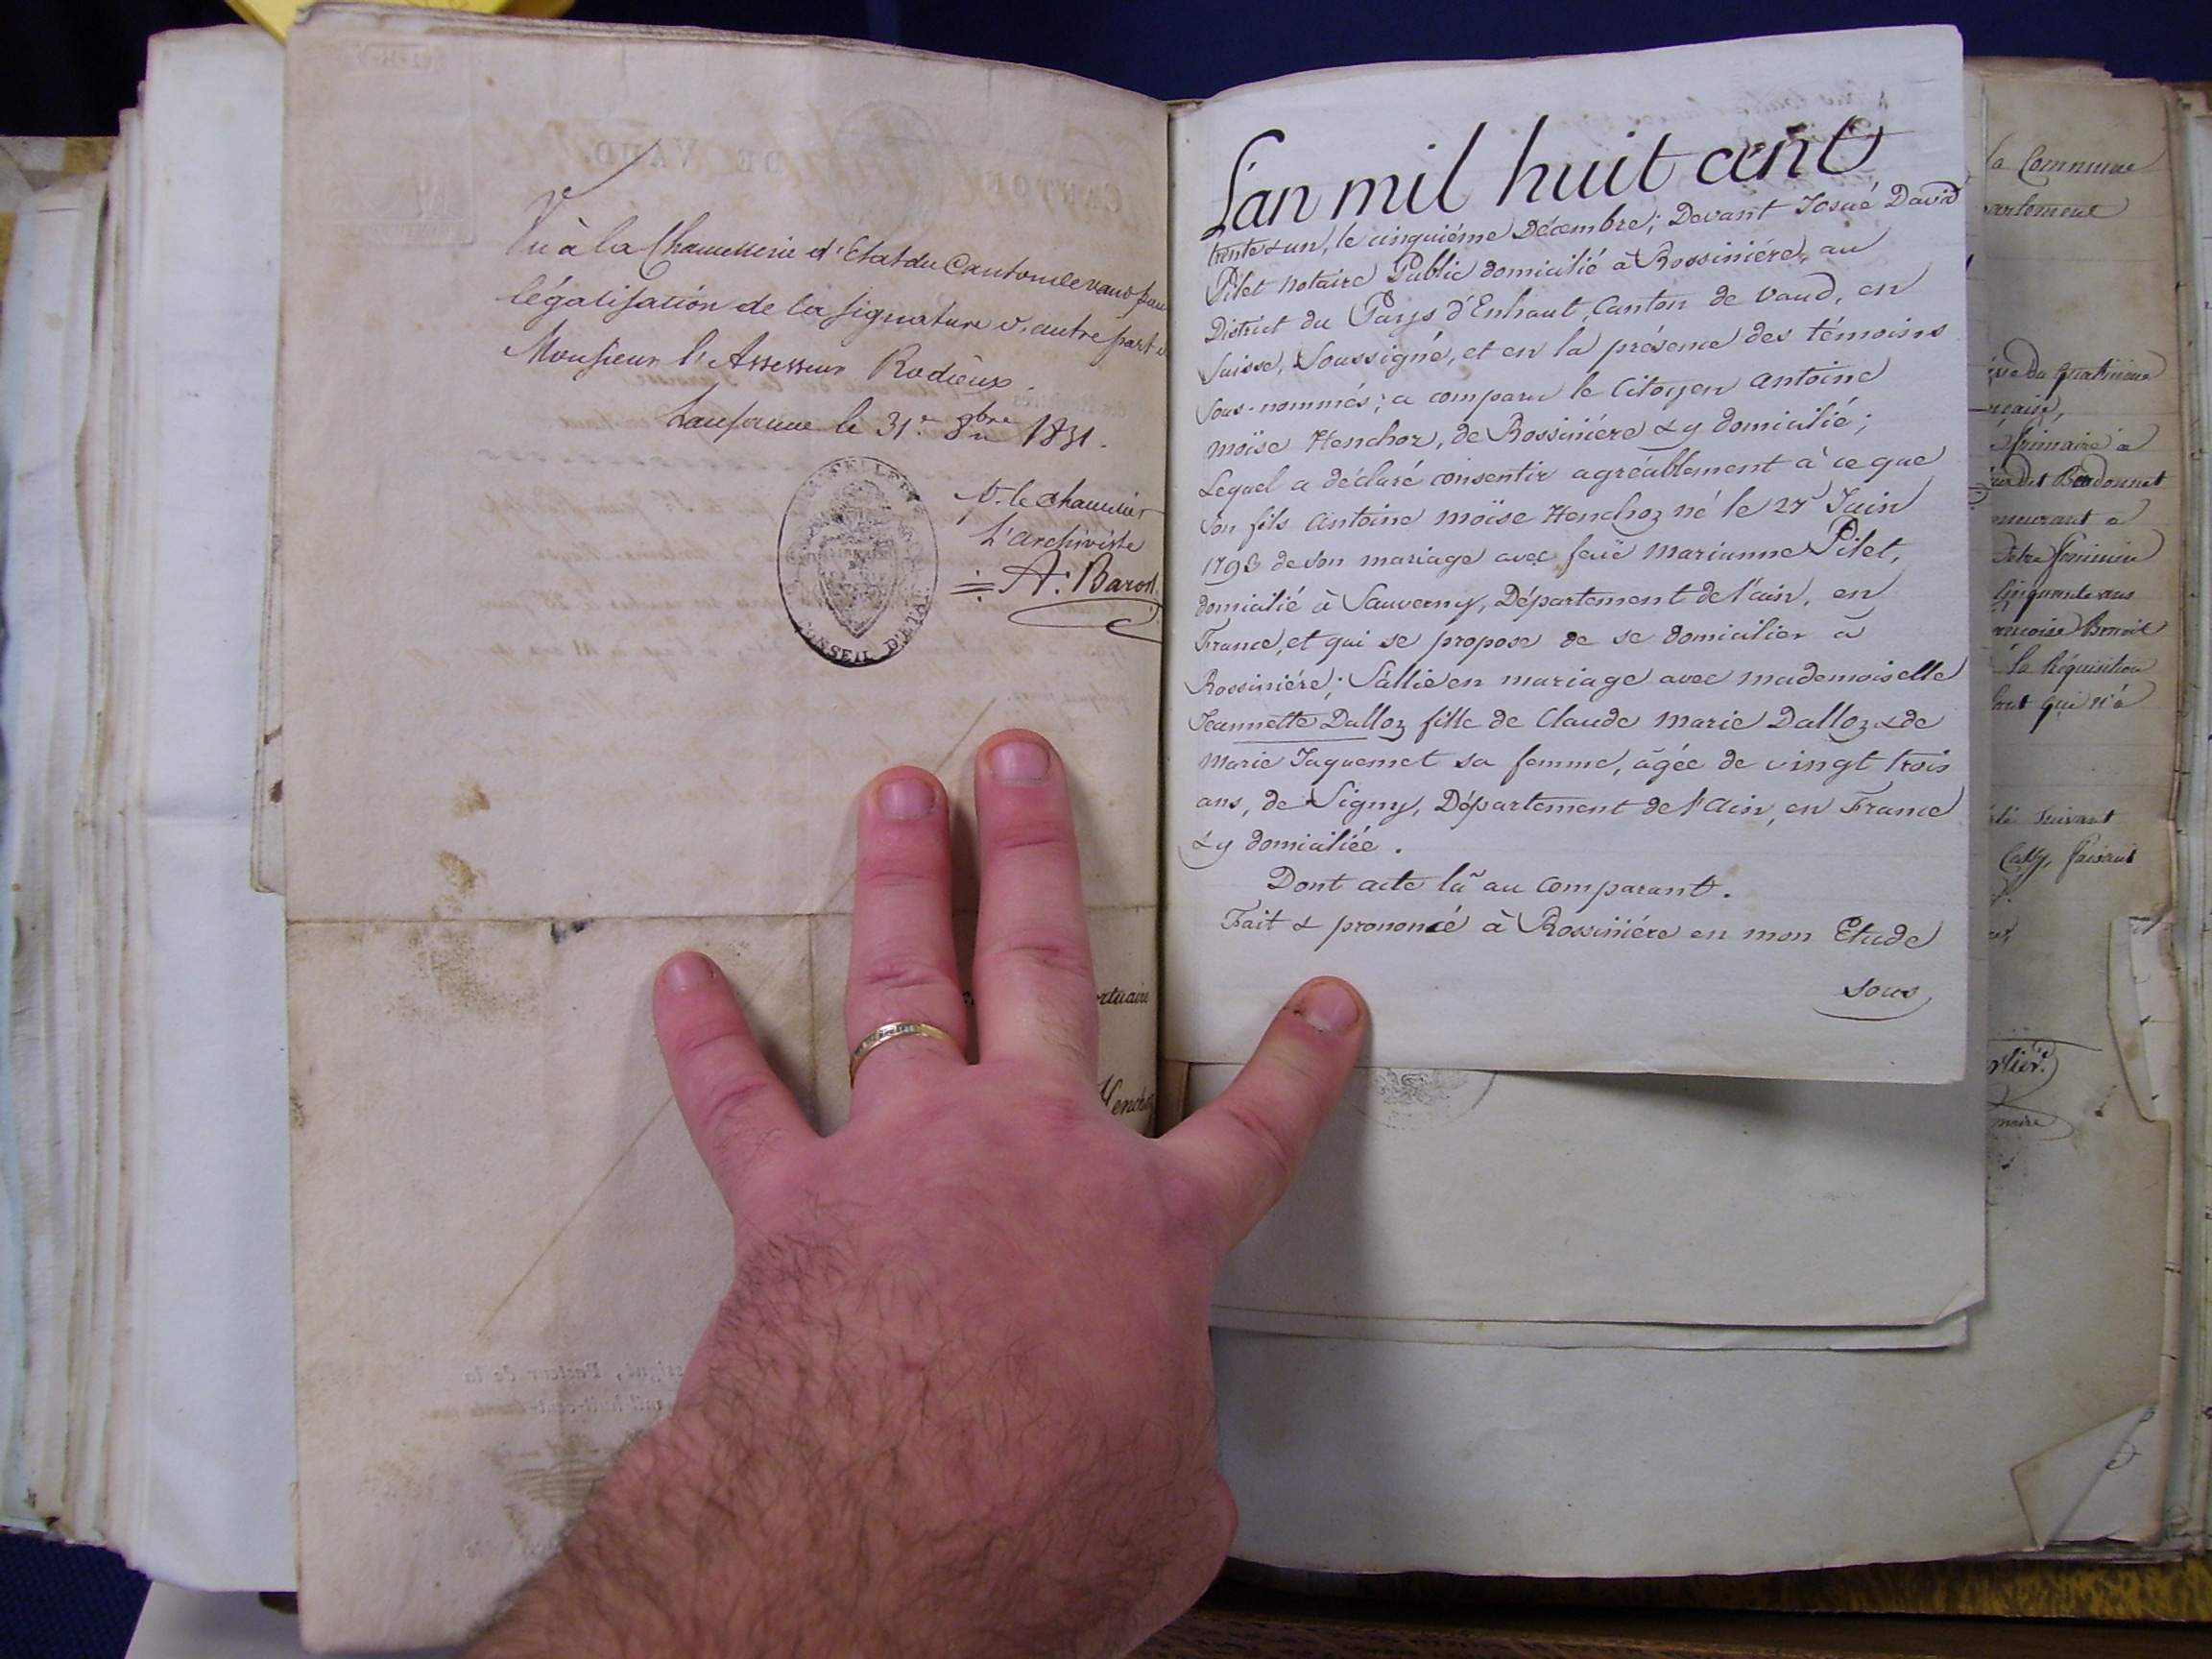 Vu à la Chancellerie d'Etat du Canton de Vaud pour
légalisation de la signature d'autre part de
Monsieur l'Assesseur Rodieux.
Lausanne le 31.e 8bre 1831.
P. le Chancelier
L'Archiviste
A. Baron
CONSEIL D'ETAT
ortuaire
Henchoz
L'an mil huit cent
trente & un, le cinquiéme Décembre; Devant Josué David
Pilet notaire Public domicilié à Rossiniére, au
District du Pays d'Enhaut, Canton de Vaud, en
Suisse, Soussigné, et en la présence des témoins
sous-nommés; a comparu le Citoyen Antoine
moïse Henchoz, de Rossiniére & y domicilié;
Lequel a déclaré consentir agréablement à ce que
son fils Antoine moïse Henchoz né le 27 Juin
1793 de son mariage avec feüe Marianne Pilet,
domicilié à Sauverny, Département de l'ain, en
France, et qui se propose de se domicilier à
Rossiniére; S'allie en mariage avec mademoiselle
Jeannette Dalloz fille de Claude Marie Dalloz & de
Marie Jaquemet sa femme, âgée de vingt trois
ans, de Signy, Département de l'Ain, en France
& y domiciliée.
Dont acte lu au Comparant.
Fait & prononcé à Rossiniére en mon Etude
sous
la Commune
partement
primaire à
dit Bardonnet
meurant à
la Réquisition
qui n'a
suivant
faisant